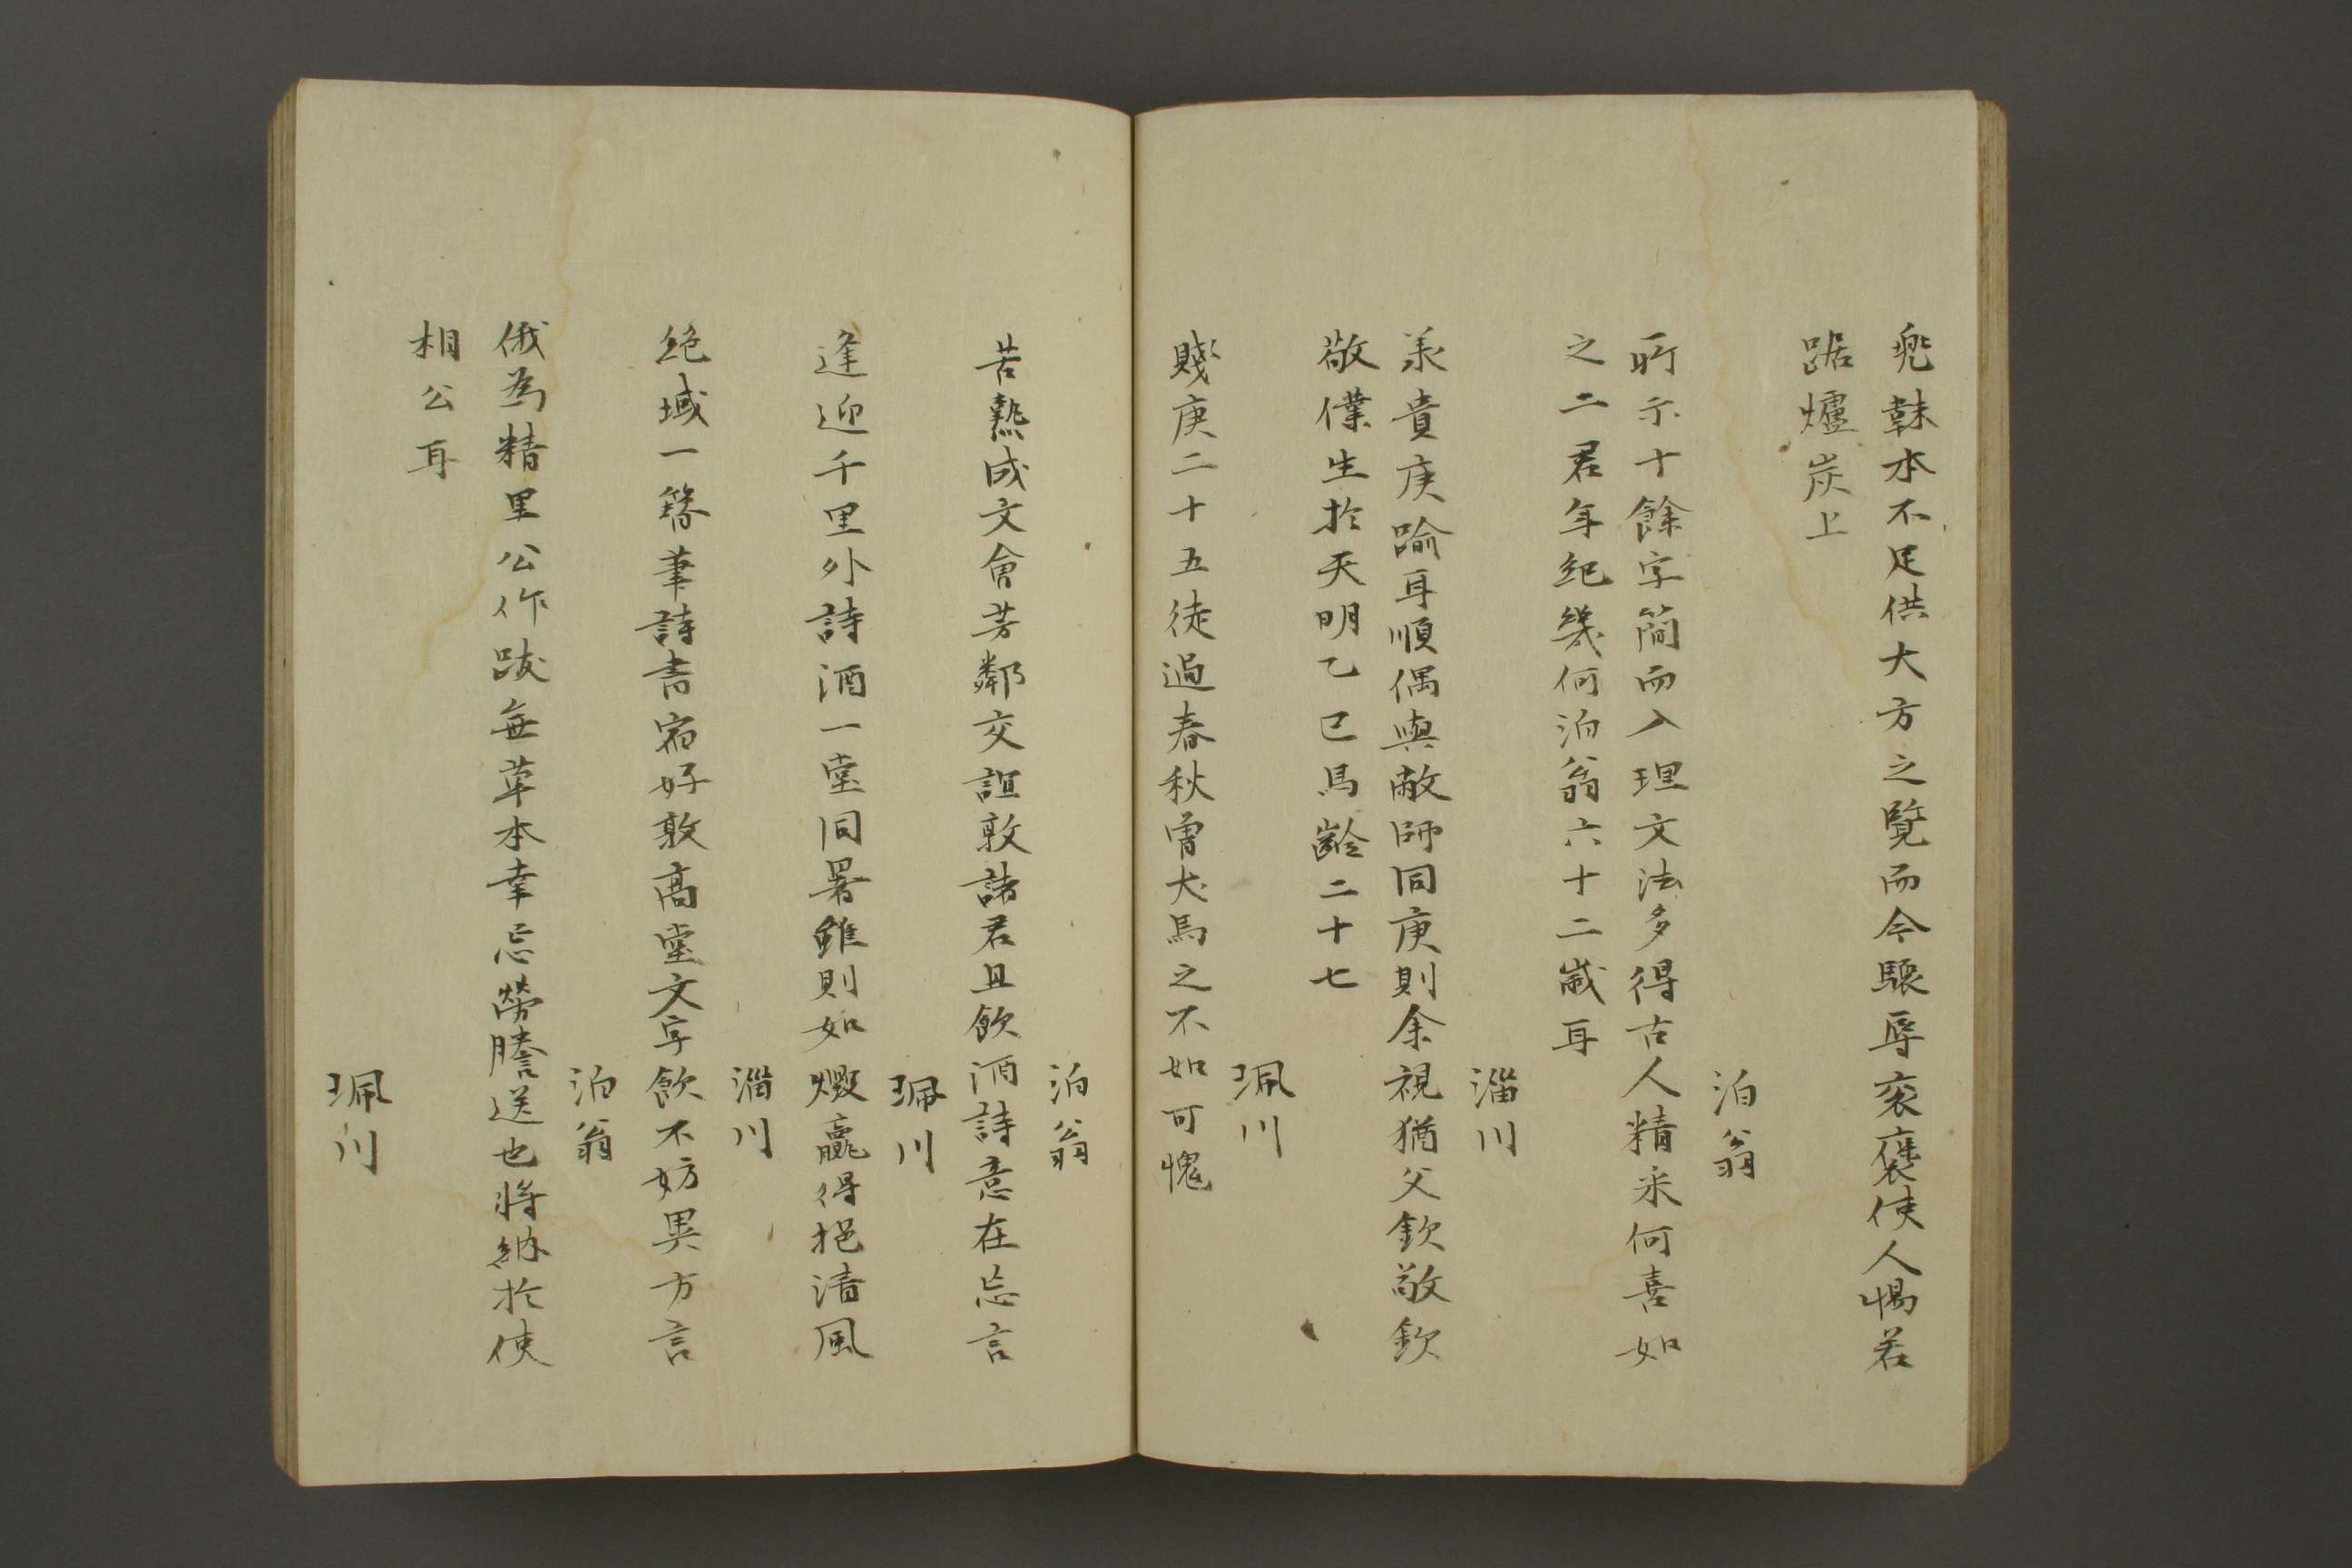 兜韎本不足供大方之覽而今驟辱衮褒使人惕若
踞爐炭上
泊翁
所示十餘字簡而入理文法多得古人精采何喜如
之二君年紀幾何泊翁六十二歲耳
淄川
羕貴庚踰耳順偶與敝師同庚則余視猶父欽敬欽
敬僕生於天明乙巳馬齡二十七
珮川
賤庚二十五徒過春秋曾犬馬之不如可愧
泊翁
苦熱成文會芳鄰交誼敦諸君且飲酒詩意在忘言
珮川
逢迎千里外詩酒一堂同暑雖則如燬贏得挹清風
淄川
絶域一簪筆詩書宿好敦高堂文字飲不妨異方言
泊翁
俄為精里公作跋無草本幸忘勞謄送也將納於使
相公耳
珮川